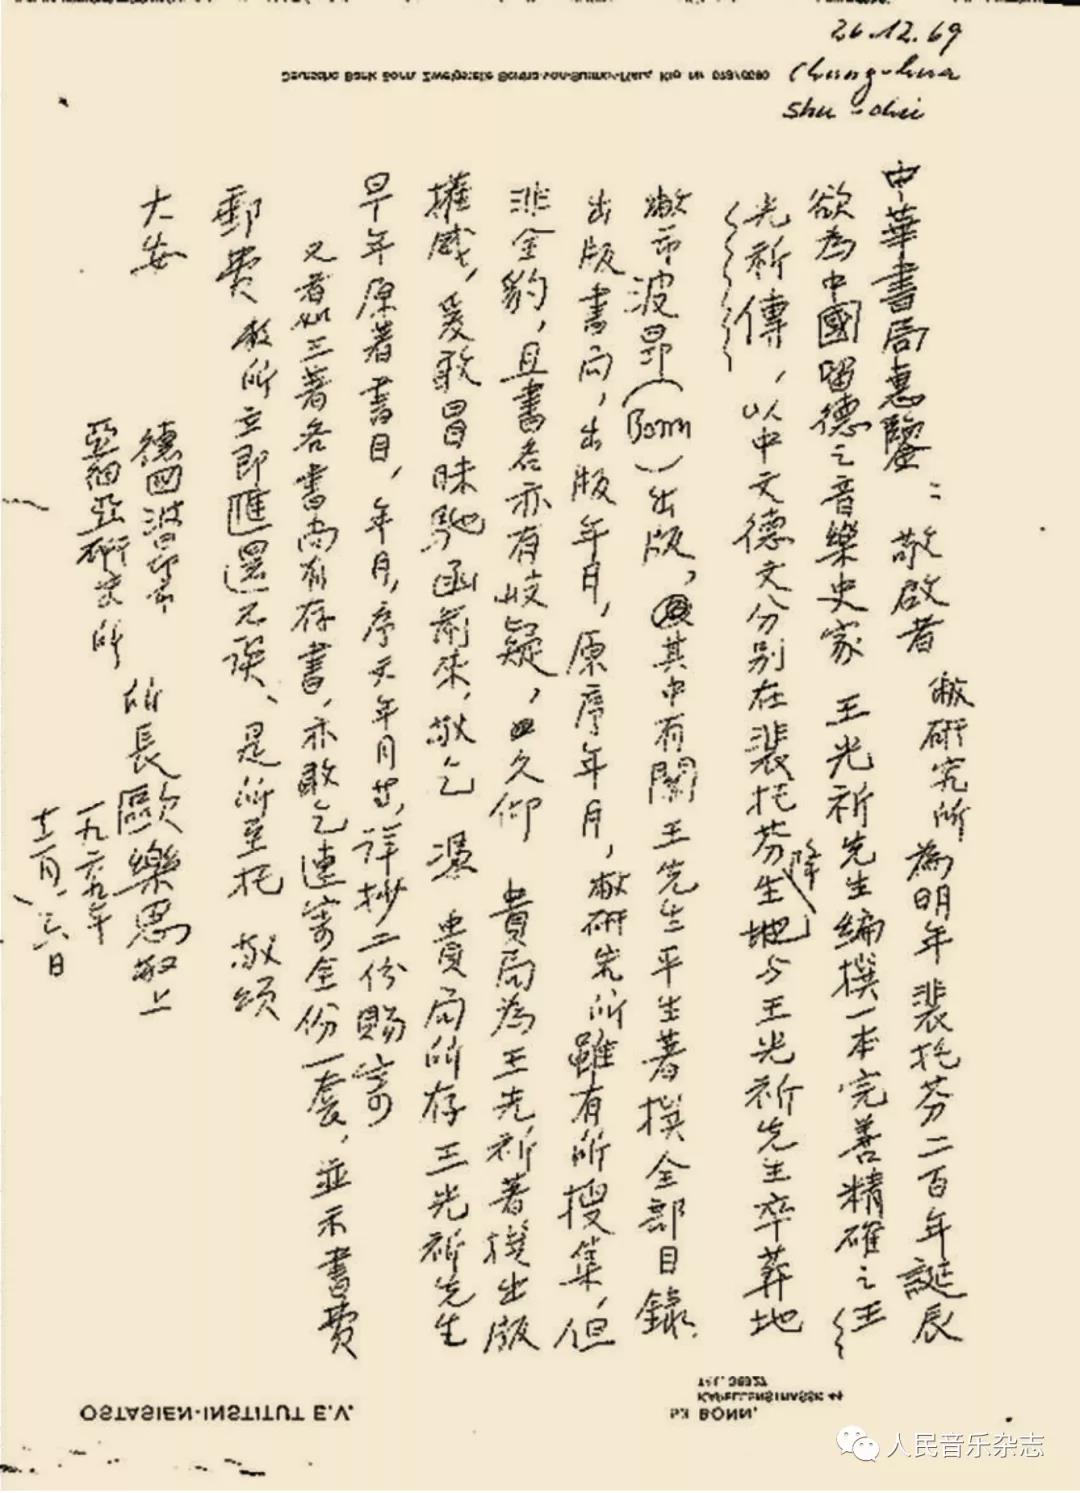 26.12.69
Chung-hua
Shu-chü
Deutsche Bank Bonn, Zweigstelle Bertha-von-Suttner-Platz, Kto. nr. 078/0080
中華書局惠鑒:敬啟者 敝研究所為明年裴托芬二百年誕辰
欲為中國留德之音樂史家 王光祈先生編撰一本完善精確之王
光祈傳,以中文德文分別在裴托芬降生地与王光祈先生卒葬地
敝市波昂(Bonn)出版,其中有關王先生平生著撰全部目錄.
出版書局,出版年月,原序年月,敝研究所雖有所搜集,但
非全豹,且書名亦有歧疑,久仰 貴局為王先祈著撰出版
權威,爰敢冒昧馳函前來,敬乞 憑 貴局所存王光祈先生
早年原著書目,年月,序文年月等,詳抄二份賜寄
又者如王著各書尚有存書,亦敢乞連寄全份一套,並示書費
郵費 敝所立即匯還不誤、是所至托 敬頌
大安
德國波昂市
亞細亞研究所 所長歐樂思敬上
一九六九年
十二月、六日
OSTASIEN-INSTITUT E.V.
53 BONN,
KAPELLENSTRASSE 44
TEL. 36327
人民音乐杂志